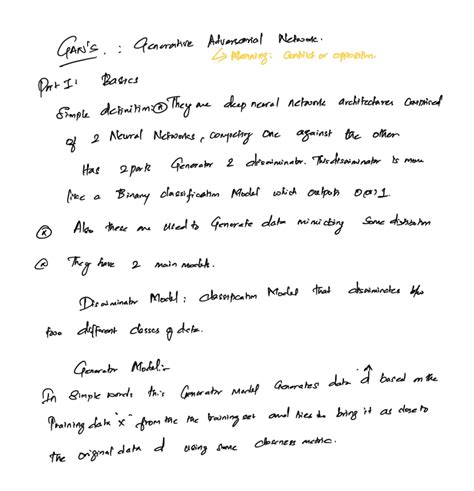 GAN's : Generative Adversarial Network.
↳ Meaning: Conflict or opposition.
Part I: Basics
Simple definition: They are deep neural network architectures comprised
of 2 Neural Networks, competing one against the other
Has 2 parts Generator & discriminator. This discriminator is more
like a Binary classification Model which outputs 0 (or) 1.
Also these are used to Generate data mimicking some distribution
They have 2 main models.
Discriminator Model: classification Model that discriminates b/w
two different classes of data.
Generator Model:-
In Simple words this Generator Model Generates data d̂ based on the
training data "x" from the the training set and tries to bring it as close to
the original data d using some closeness metric.